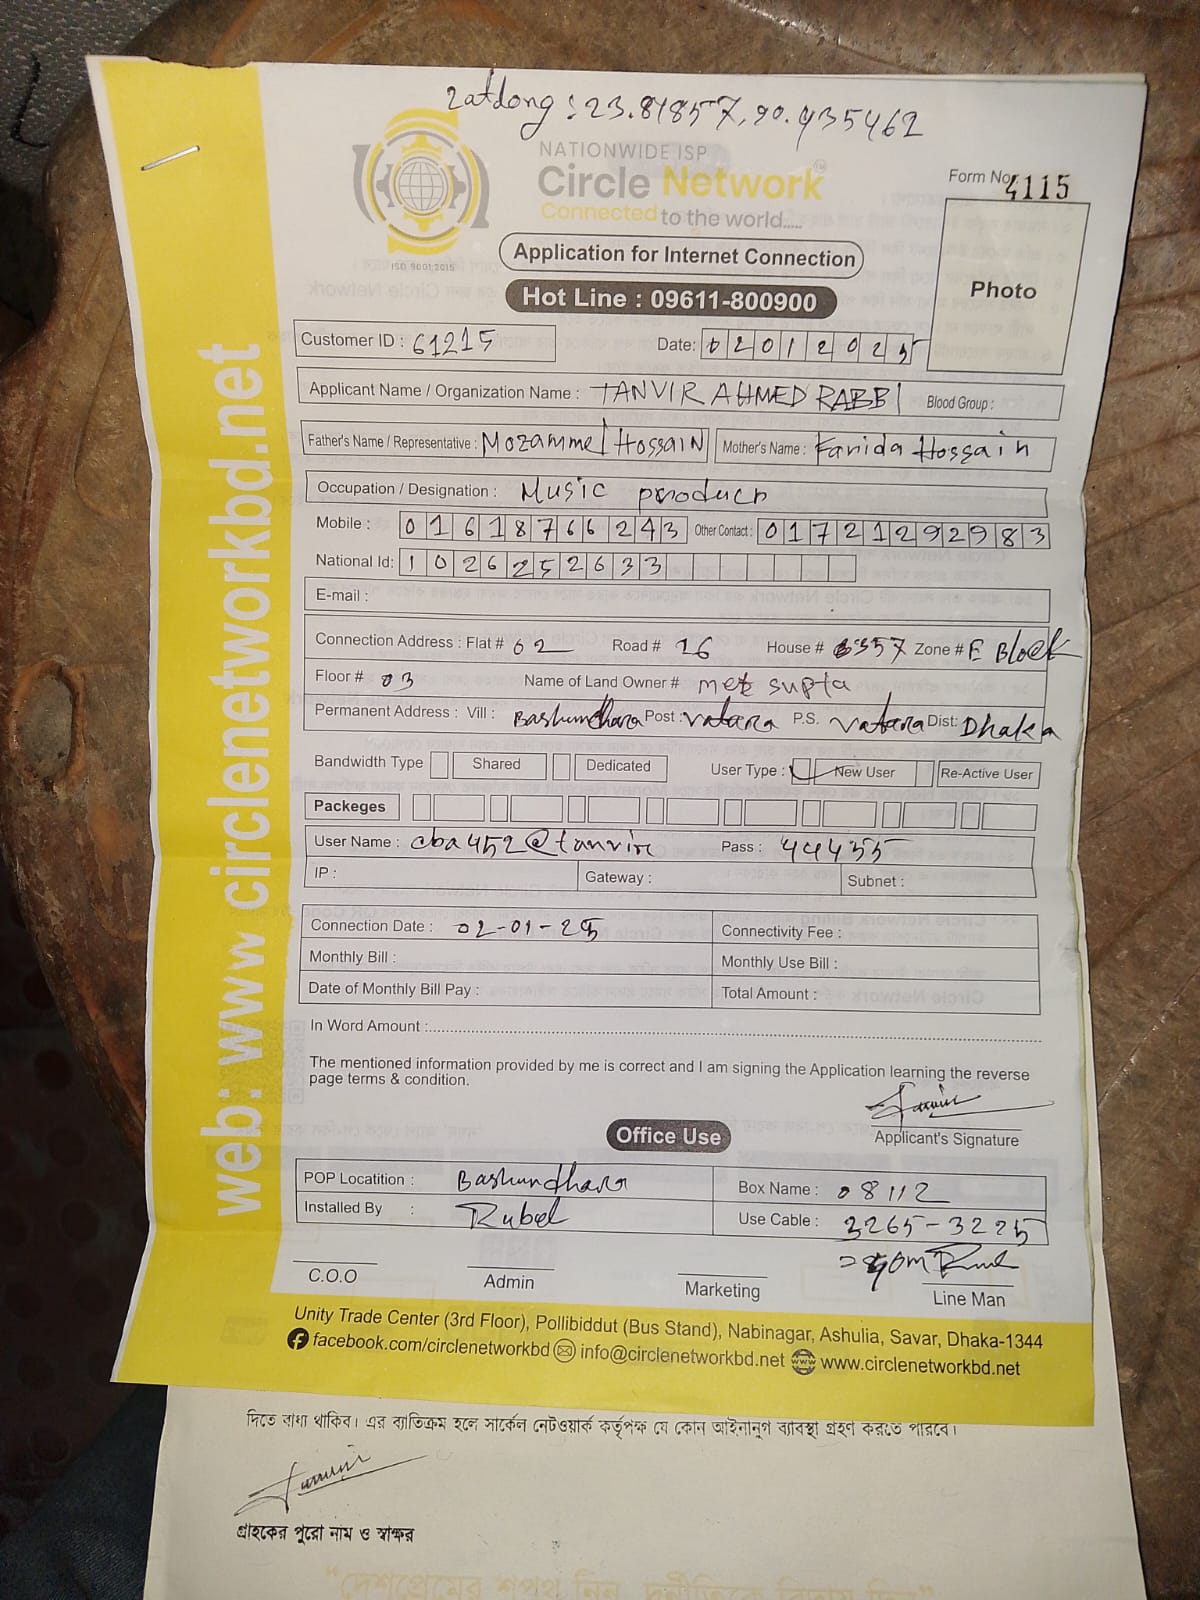 23.81857, 90.435462
NATIONWIDE ISP
Circle Network
Connected to the world.....
ISO 9001:2015
Form No. 4115
Photo
Application for Internet Connection
Hot Line : 09611-800900
Customer ID : 61215 Date: 02012025
Applicant Name / Organization Name : TANVIR AHMED RABBI Blood Group :
Father's Name / Representative : Mozammel Hossain Mother's Name : Farida Hossain
Occupation / Designation : Music producr
Mobile : 01618766243 Other Contact : 01721292983
National Id: 1026252633
E-mail :
Connection Address : Flat # 62 Road # 16 House # 357 Zone # E Block
Floor # 03 Name of Land Owner # supta
Permanent Address : Vill : Bashundhara Post : vatara P.S. vatara Dist: Dhaka
Bandwidth Type Shared Dedicated User Type : New User Re-Active User
Packeges
User Name : cba452@tanvir Pass : 44455
IP : Gateway : Subnet :
Connection Date : 02-01-25 Connectivity Fee :
Monthly Bill : Monthly Use Bill :
Date of Monthly Bill Pay : Total Amount :
In Word Amount :
The mentioned information provided by me is correct and I am signing the Application learning the reverse
page terms & condition.
Applicant's Signature
Office Use
POP Locatition : Bashundhara Box Name : 08112
Installed By : Rubel Use Cable : 3265-3225
C.O.O Admin Marketing Line Man
Unity Trade Center (3rd Floor), Pollibiddut (Bus Stand), Nabinagar, Ashulia, Savar, Dhaka-1344
facebook.com/circlenetworkbd info@circlenetworkbd.net www.circlenetworkbd.net
web: www.circlenetworkbd.net
দিতে বাধ্য থাকিব। এর ব্যতিক্রম হলে সার্কেল নেটওয়ার্ক কর্তৃপক্ষ যে কোন আইনানুগ ব্যবস্থা গ্রহণ করতে পারবে।
গ্রাহকের পুরো নাম ও স্বাক্ষর
"দেশপ্রেমের শপথ নিন, দুর্নীতিকে বিদায় দিন"